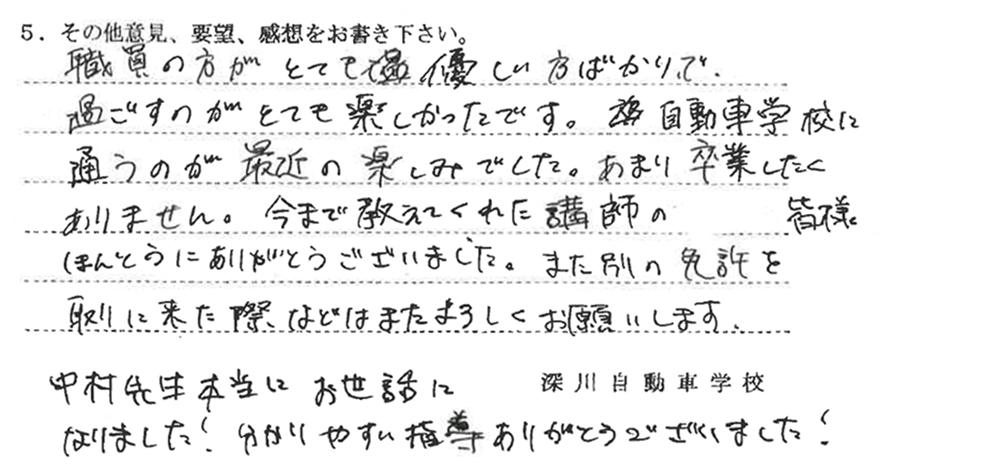 5．その他意見、要望、感想をお書き下さい。
職員の方がとても優しい方ばかりで、
過ごすのがとても楽しかったです。自動車学校に
通うのが最近の楽しみでした。あまり卒業したく
ありません。今まで教えてくれた講師の 皆様
ほんとうにありがとうございました。また別の免許を
取りに来た際などはまたよろしくお願いします。
中村先生本当にお世話に
深川自動車学校
なりました！分かりやすい指導ありがとうございました！